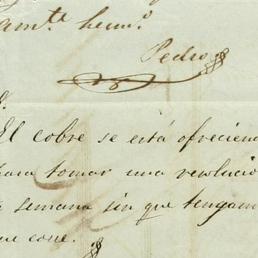 amte. hermo.
Pedro
El cobre se está ofreciend
para tomar una revolució
semana sin que tengam
que